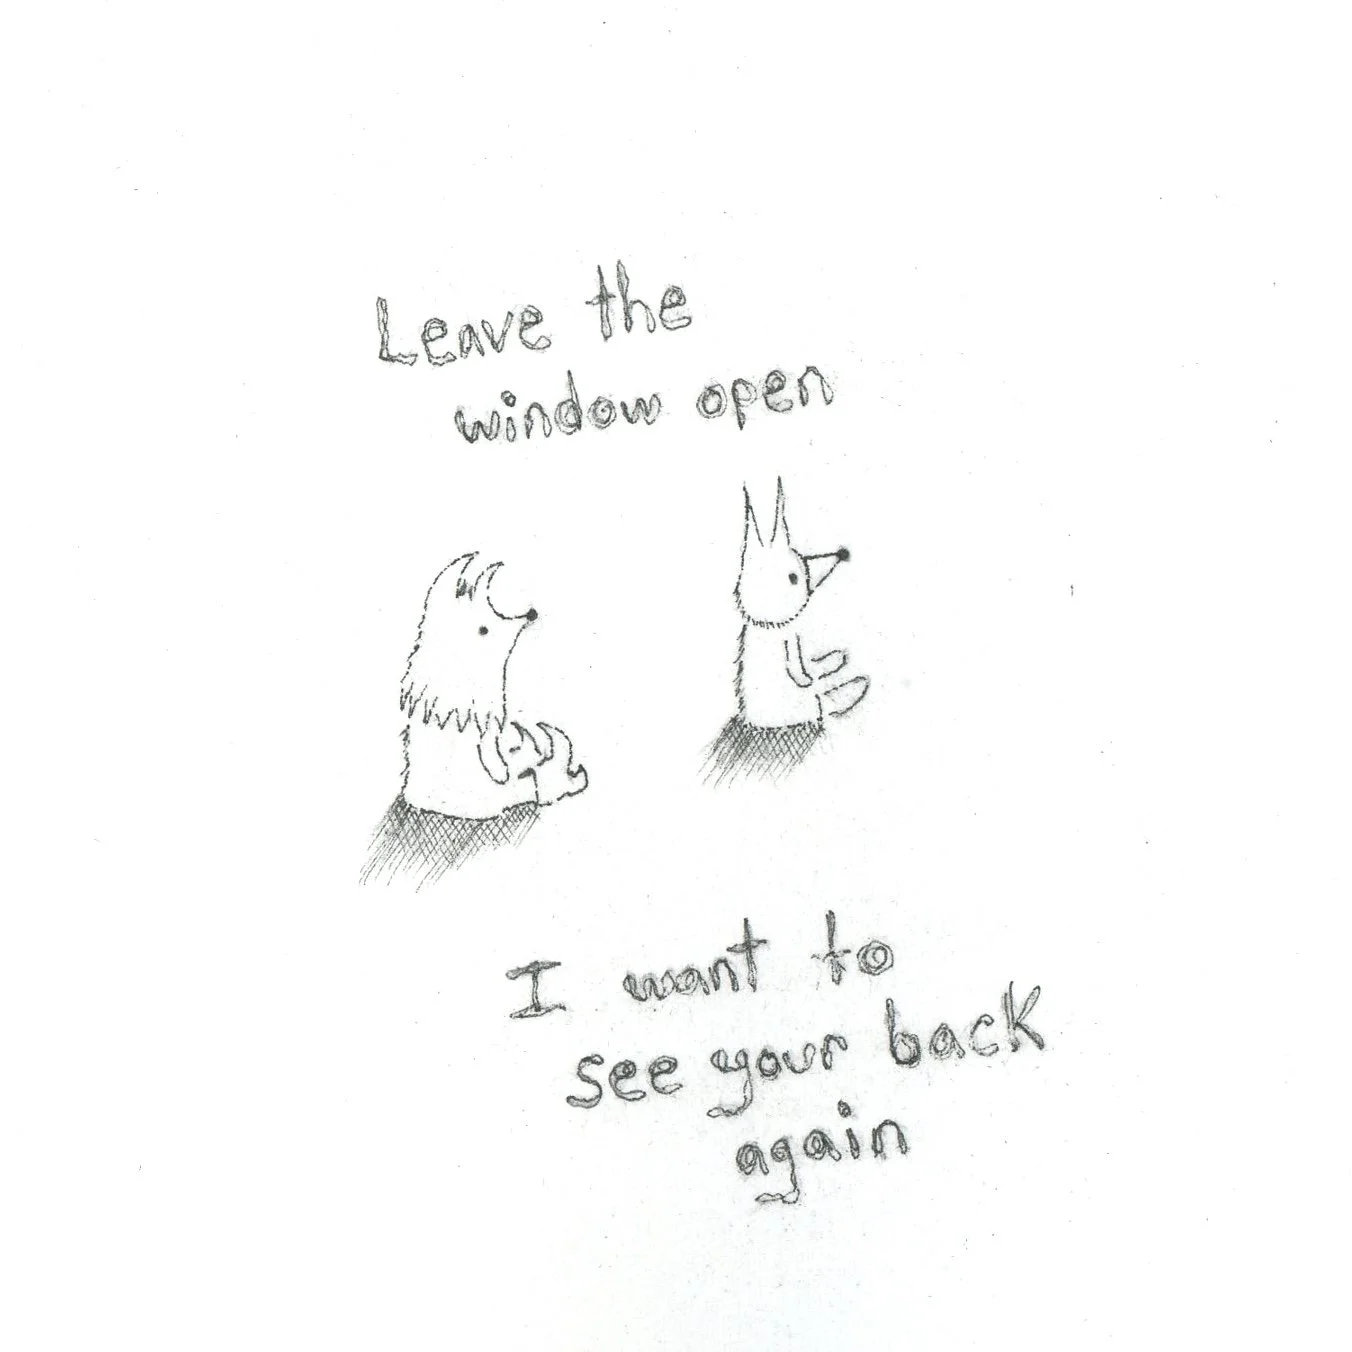 Leave the
window open
I want to
see your back
again